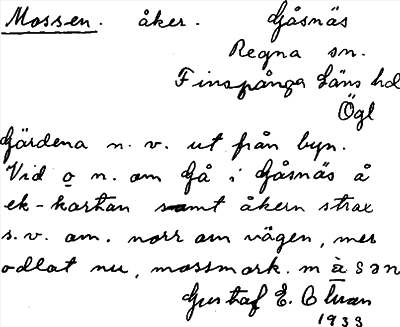 Mossen. åker. Gåsnäs
Regna sn.
Finspånga Läns hd
Ögl
Gärdena n. v. ut från byn.
Vid o n. om Gå i Gåsnäs å
ek-kartan samt åkern strax
s. v. om. norr om vägen, mer
odlat nu, mossmark. m
Gustaf E.
1933